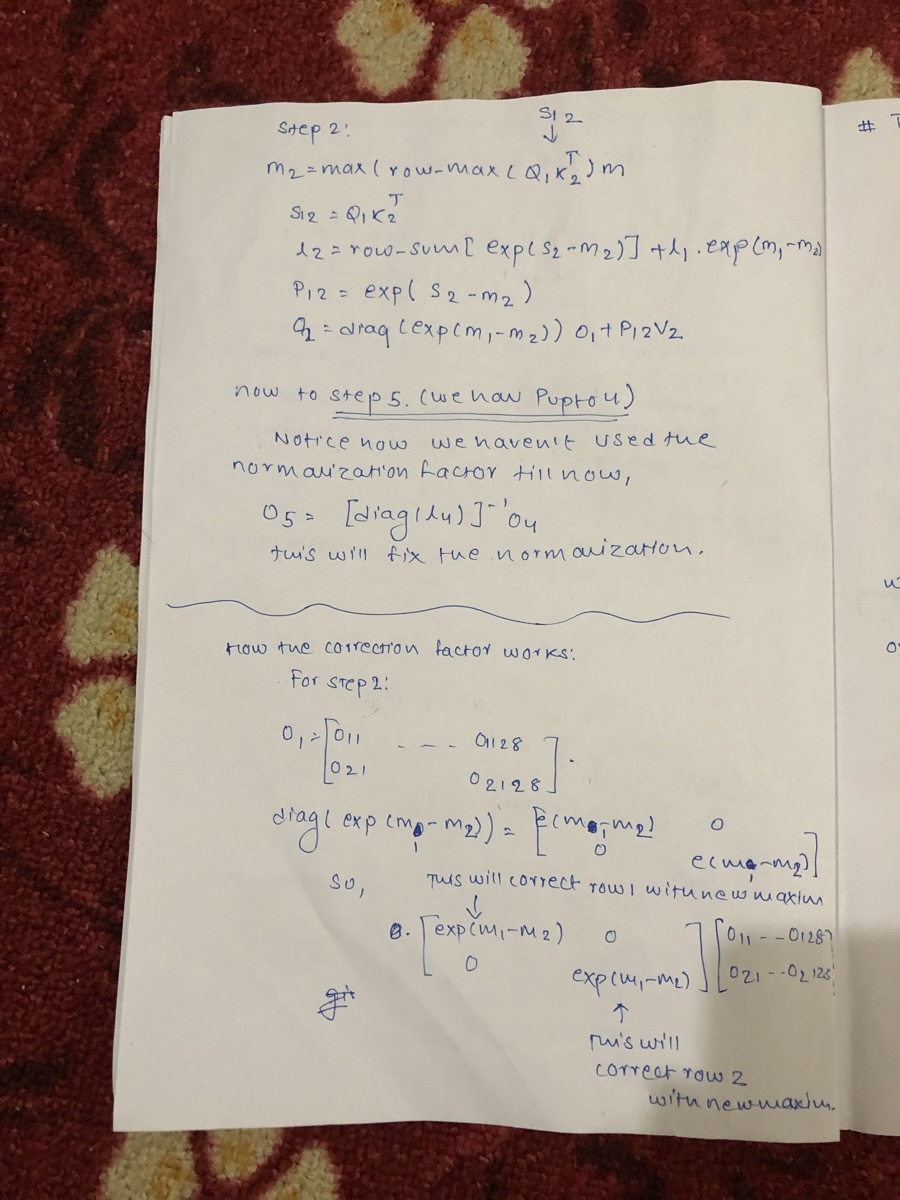 Step 2:
S12
↓
m2 = max(row-max(Q1K2^T) m
S12 = Q1K2^T
l2 = row-sum[exp(S2-m2)] + l1 . exp(m1-m2)
P12 = exp(S2-m2)
O2 = diag(exp(m1-m2)) O1 + P12V2
now to step 5. (we have
Notice now we haven't used the
normalization factor till now,
O5 = [diag(l4)]^-1 O4
this will fix the normalization.
How the correction factor works:
For step 2:
O1 = [O11 - - - O1128
O21 O2128] .
diag(exp(m1-m2)) = [e(m1-m2) 0
0 e(m1-m2)]
So, This will correct row 1 with new maxim
↓
[exp(m1-m2) 0 ] [O11 - - O128]
[0 exp(m1-m2)] [O21 - - O2128]
↑
This will
correct row 2
with new maxim.
# T
w
o